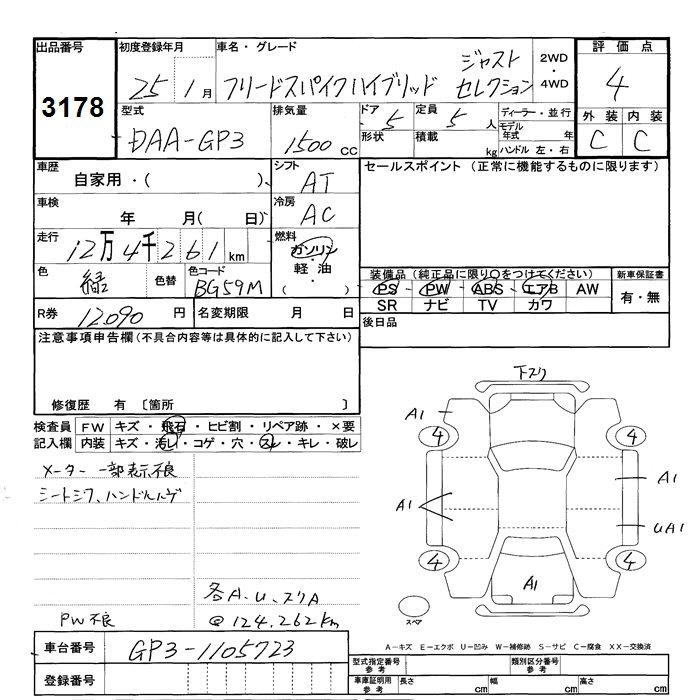 出品番号
3178
初度登録年月
25 1月
車名・グレード
フリードスパイクハイブリッド
ジャスト
セレクション
2WD
・
4WD
評価点
4
外装 内装
C C
型式
DAA-GP3
排気量
1500 cc
ドア 5
定員 5 人
形状
積載 kg
ディーラー・並行
モデル年式 年
ハンドル 左・右
車歴
自家用・( )
シフト
AT
セールスポイント (正常に機能するものに限ります)
車検
年 月( 日)
冷房
AC
走行
12万4千261km
燃料
ガソリン
・
軽油
・
( )
色
緑
色替
色コード
BG59M
装備品 (純正品に限り○をつけてください)
PS PW ABS エアB AW
SR ナビ TV カワ
新車保証書
有・無
R券 12,090 円
名変期限 月 日
後日品
注意事項申告欄(不具合内容等は具体的に記入して下さい)
修復歴 有 〔箇所 〕
検査員記入欄
FW キズ・飛石・ヒビ割・リペア跡・×要
内装 キズ・汚レ・コゲ・穴・スレ・キレ・破レ
メーター一部表示不良
シートシワ、ハンドルハゲ
各A、U、スリA
PW不良
@124,262km
下スリ
A1
4 4
A1
A1
UA1
4 4
A1
スペア
A-キズ E-エクボ U-凹み W-補修跡 S-サビ C-腐食 XX-交換済
車台番号
GP3-1105723
登録番号
型式指定番号
参考
類別区分番号
参考
車庫証明用
参考
長さ cm 幅 cm 高さ cm